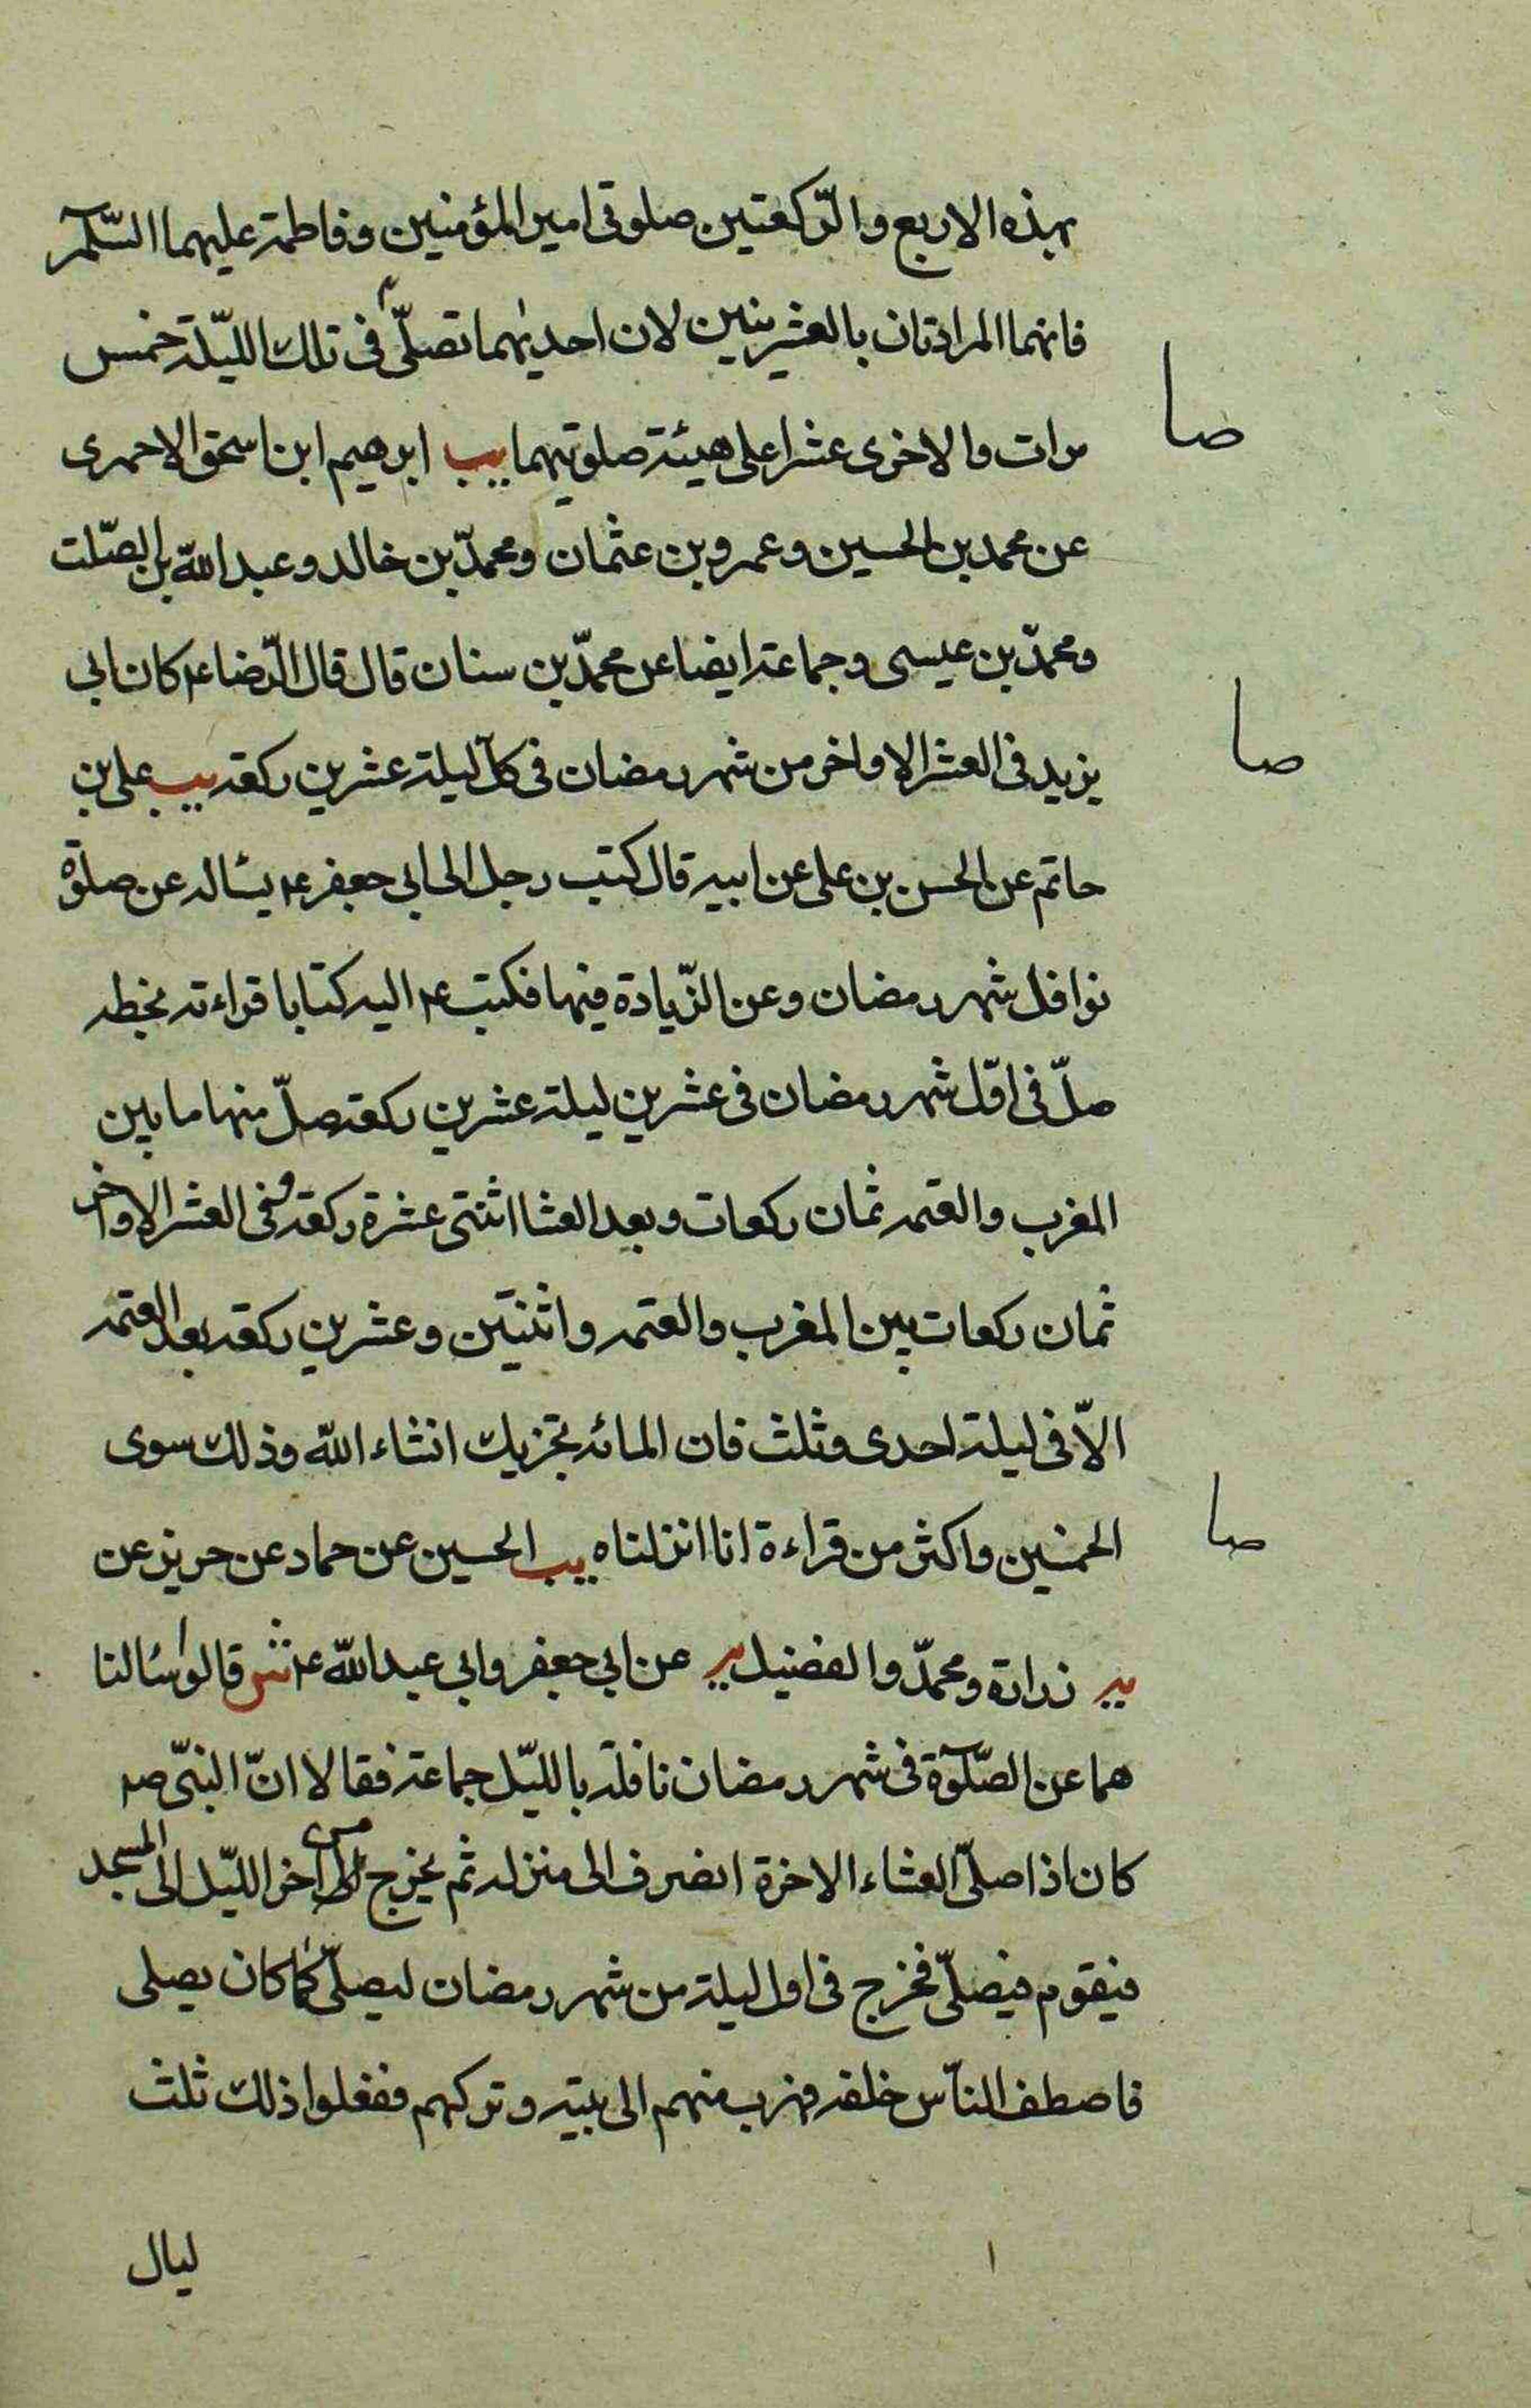 بهذه الاربع والرّكعتين صلوتى امير المؤمنين وفاطمة عليهما السّلم
فانهما المرادتان بالعشرينين لان احديهما تصلّى فى تلك اللّيلة خمس
صا
مرات والاخرى عشرا على هيئة صلوتيهما يب ابرهيم ابن اسحق الاحمرى
عن محمد بن الحسين وعمرو بن عثمان ومحمّد بن خالد وعبد اللّه بن الصّلت
ومحمّد بن عيسى وجماعة ايضا عن محمّد بن سنان قال قال الرّضا ع كان ابى
صا
يزيد فى العشر الاواخر من شهر رمضان فى كلّ ليلة عشرين ركعة يب على بن
حاتم عن الحسن بن على عن ابيه قال كتب رجل الى ابى جعفر ع يسئاله عن صلوة
نوافل شهر رمضان وعن الزّيادة فيها فكتب ع اليه كتابا قراءته بخطه
صلّ فى اوّل شهر رمضان فى عشرين ليلة عشرين ركعة صلّ منها ما بين
المغرب والعتمه ثمان ركعات وبعد العشا اثنتى عشرة ركعة وفى العشر الاواخر
ثمان ركعات بين المغرب والعتمه واثنتين وعشرين ركعة بعد العتمه
الاّ فى ليلة احدى وثلث فان المائه تجزيك انشاء اللّه وذلك سوى
صا
الخمسين واكثر من قراءة انا انزلناه يب الحسين عن حماد عن حريز عن
يه زرارة ومحمّد والفضيل يه عن ابى جعفر وابى عبد اللّه ع ش قالوا سئالنا
هما عن الصّلوة فى شهر رمضان نافلة باللّيل جماعة فقالا انّ النبّى ص
كان اذا صلّى العشاء الاخرة انصرف الى منزله ثم يخرج من اخر اللّيل الى المسجد
فيقوم فيصلّى فخرج فى اول ليلة من شهر رمضان ليصلّى كما كان يصلى
فاصطف النّاس خلفه فهرب منهم الى بيته وتركهم ففعلوا ذلك ثلث
ليال
ا